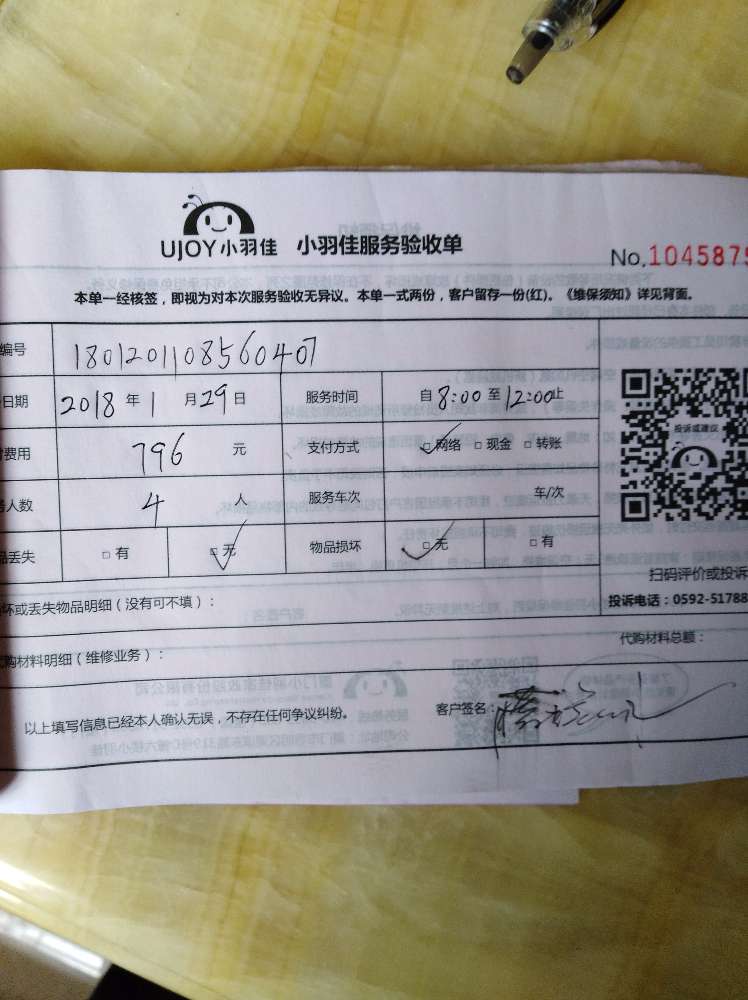 UJOY小羽佳 小羽佳服务验收单
No.1045875
本单一经核签，即视为对本次服务验收无异议。本单一式两份，客户留存一份(红)。《维保须知》详见背面。
编号 1801201108560407
日期 2018 年 1 月 29 日 服务时间 自 8:00 至 12:00 止
费用 796 元 支付方式 ☑网络 □现金 □转账
人数 4 人 服务车次 车/次
品丢失 □有 ☑无 物品损坏 ☑无 □有
投诉或建议
扫码评价或投诉
投诉电话：0592-51788
坏或丢失物品明细（没有可不填）：
代购材料明细（维修业务）： 代购材料总额：
以上填写信息已经本人确认无误，不存在任何争议纠纷。 客户签名：